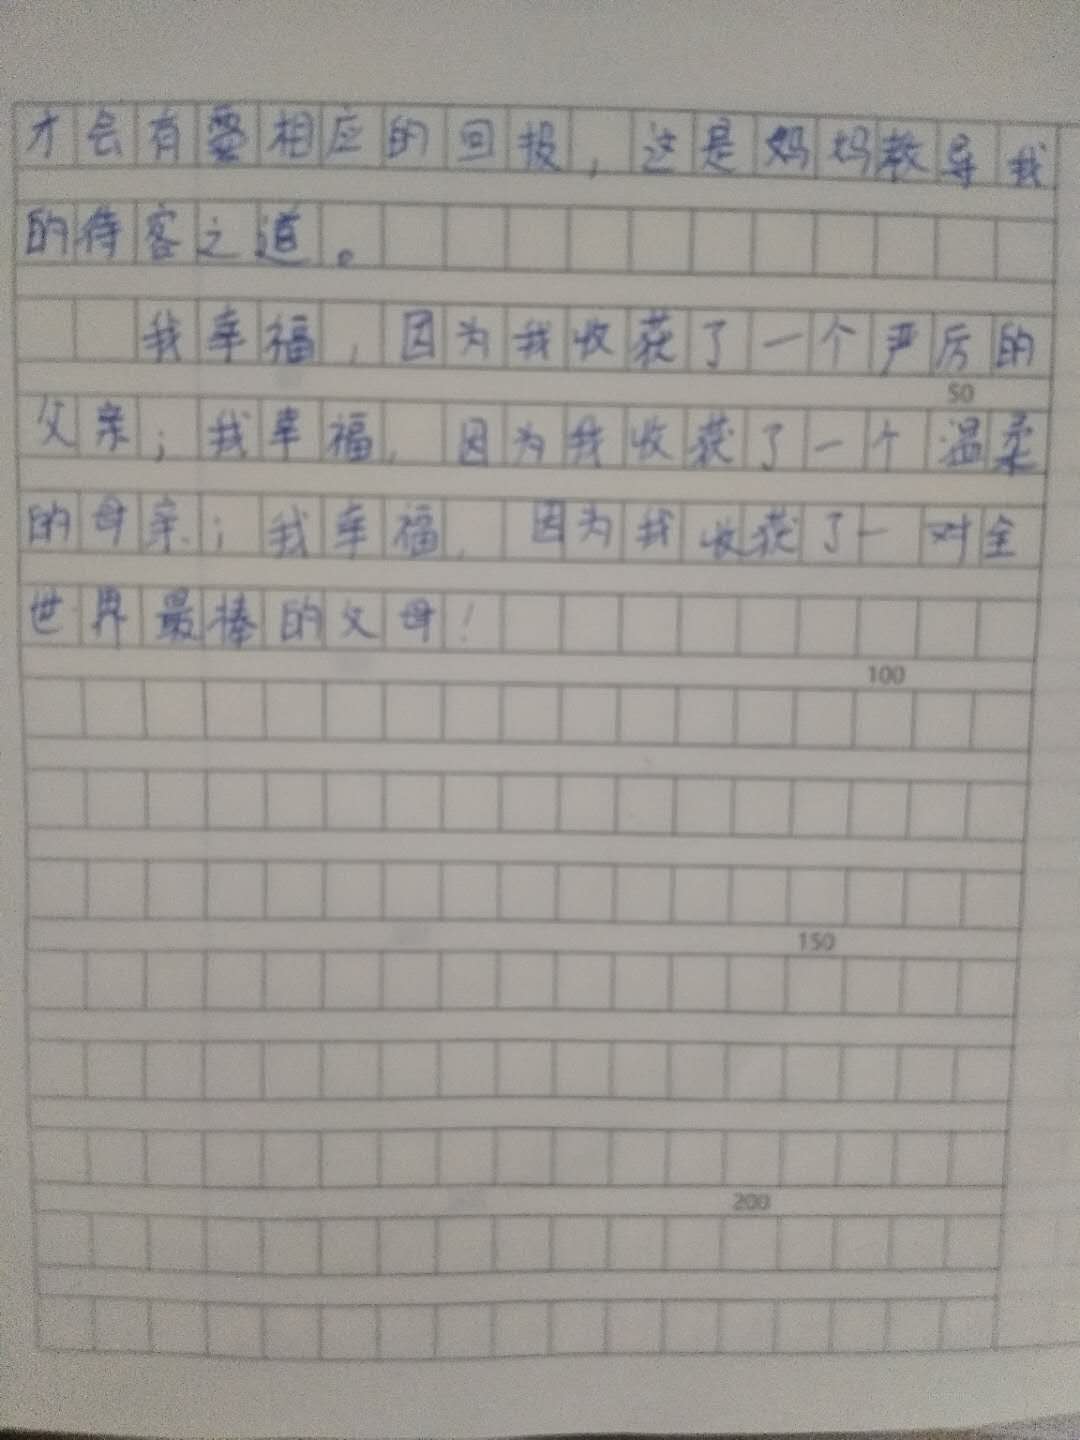 才会有相应的回报，这是妈妈教导我
的待客之道。
我幸福，因为我收获了一个严厉的
50
父亲；我幸福，因为我收获了一个温柔
的母亲；我幸福，因为我收获了一对全
世界最棒的父母！
100
150
200